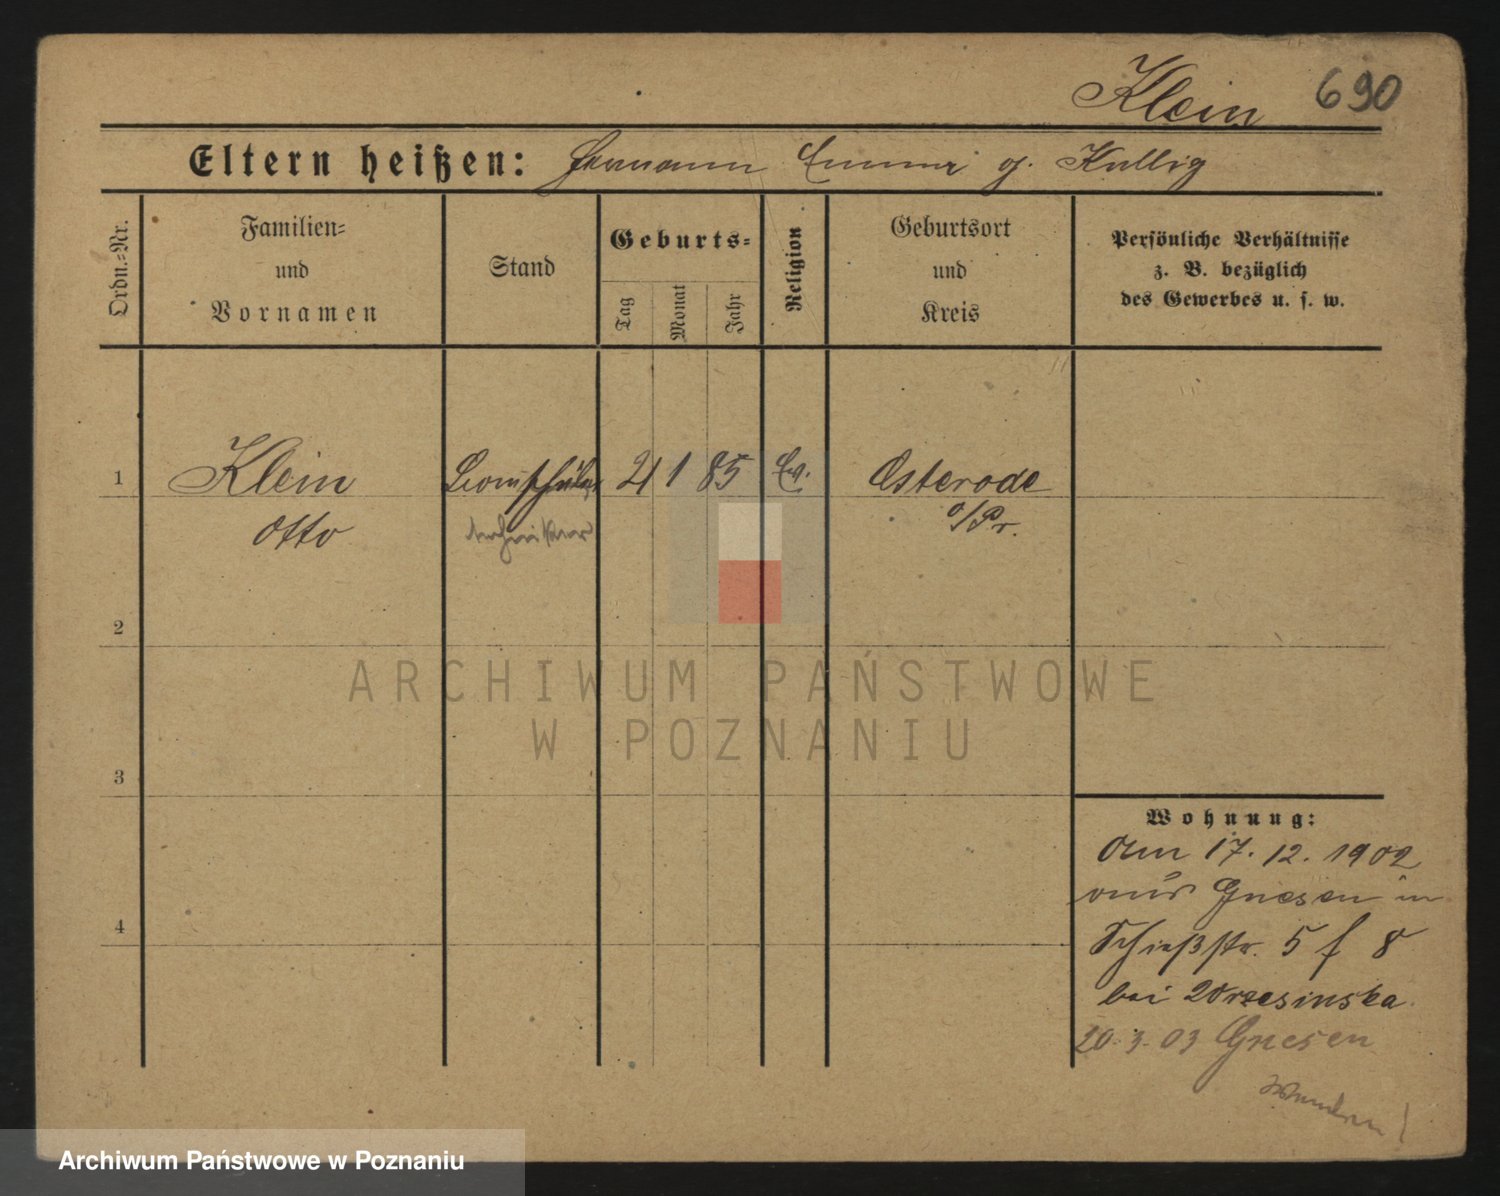 Klein 690
Eltern heißen: Hermann Emma g. Kullig
Ordn.=Nr.
Familien=
und
Vornamen
Stand
Geburts=
Tag
Monat
Jahr
Religion
Geburtsort
und
Kreis
Persönliche Verhältnisse
z. B. bezüglich
des Gewerbes u. s. w.
1 Klein Bauschüler 21 1 85 Ev. Osterode
Otto techniker o/Pr.
2
3
4
Wohnung:
Am 17. 12. 1902
aus Gnesen in
Schießstr. 5 f 8
bei Wrzesinska
20. 3. 03 Gnesen
ARCHIWUM PAŃSTWOWE
W POZNANIU
Archiwum Państwowe w Poznaniu